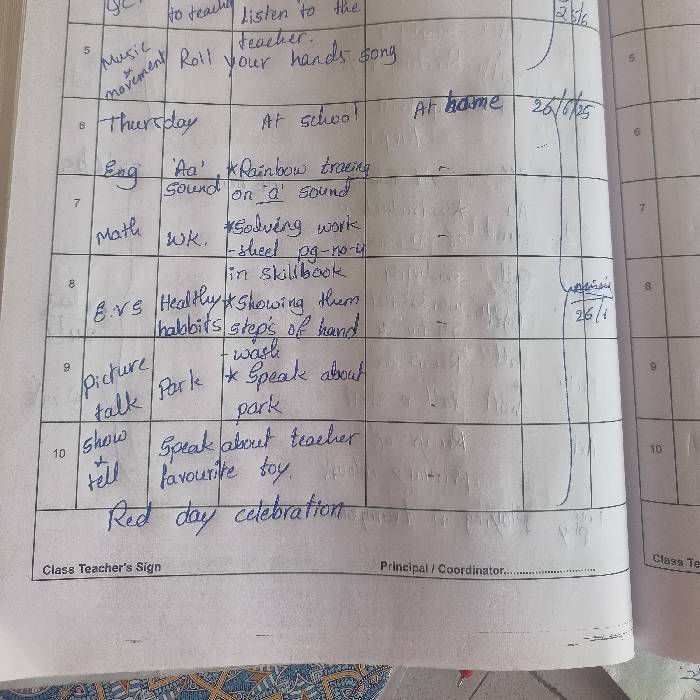 to teach listen to the
25/6
teacher.
5 Music + movement Roll your hands song
5
6 Thursday At school At home 26/6/25
6
Eng 'Aa' sound *Rainbow tracing on 'a' sound -
7
7
Math WK. *Solving work -sheet pg-no-4 in skillbook -
8
8
E.VS Healthy habbits *Showing them step's of hand -wash -
26/
9
9
Picture talk Park * Speak about park -
10 Show + tell Speak about teacher favourite toy.
10
Red day celebration
Class Teacher's Sign Principal / Coordinator..............................
Class Te